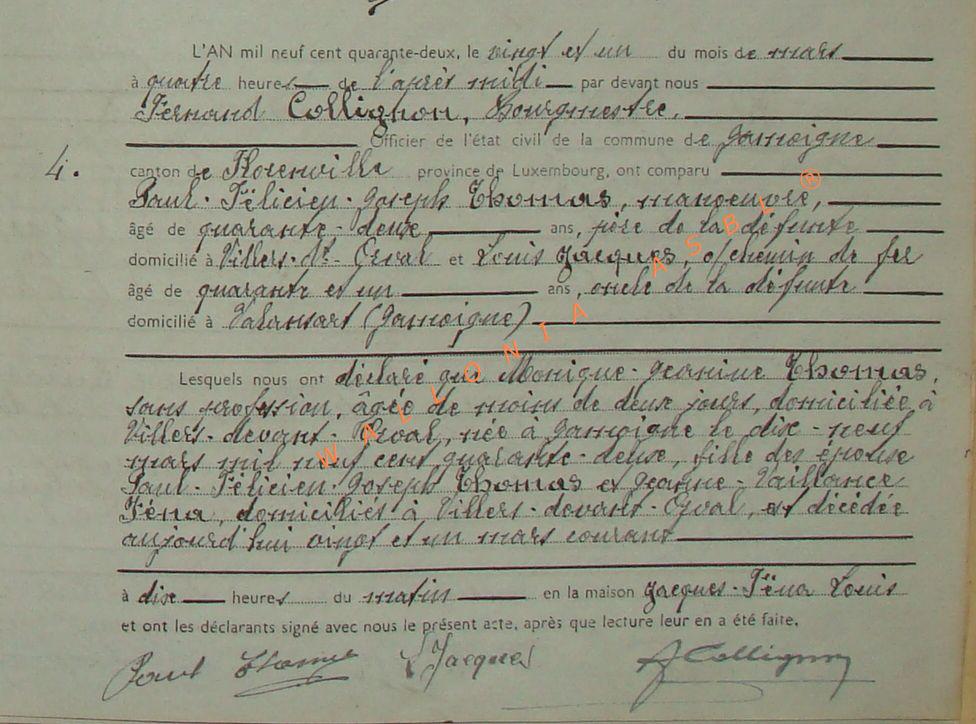 L'AN mil neuf cent quarante-deux, le vingt et un du mois de mars
à quatre heures de l'après midi par devant nous
Fernand Collignon, Bourgmestre,
Officier de l'état civil de la commune de Jamoigne
4. canton de Florenville province de Luxembourg, ont comparu
Paul-Félicien-Joseph Thomas, manoeuvre,
âgé de quarante-deux ans, père de la défunte
domicilié à Villers-dt-Orval et Louis Jacques, o/chemin de fer
âgé de quarante et un ans, oncle de la défunte
domicilié à Valansart (Jamoigne)
Lesquels nous ont déclaré que Monique-Jeanine Thomas,
sans profession, âgée de moins de deux jours, domiciliée à
Villers-devant-Orval, née à Jamoigne le dix-neuf
mars mil neuf cent quarante-deux, fille des époux
Paul-Félicien-Joseph Thomas et Jeanne-Vaillance
Féna, domiciliés à Villers-devant-Orval, est décédée
aujourd'hui vingt et un mars courant
à dix heures du matin en la maison Jacques-Féna Louis
et ont les déclarants signé avec nous le présent acte, après que lecture leur en a été faite.
Paul Thomas L Jacques F Collignon
WALLONIA ASBL ®